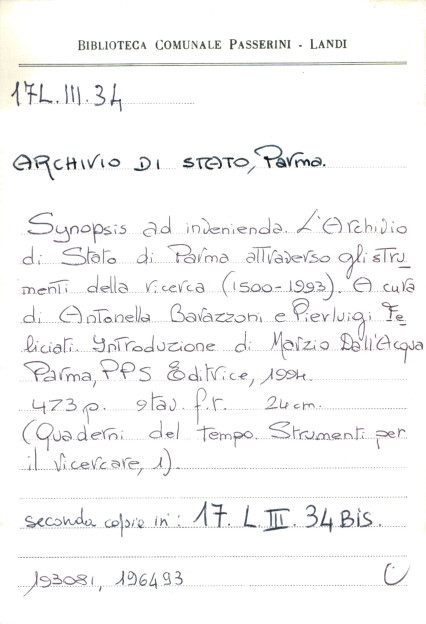 BIBLIOTECA COMUNALE PASSERINI - LANDI
17L.III.34
ARCHIVIO DI STATO, Parma.
Synopsis ad invenienda. L'Archivio
di Stato di Parma attraverso gli stru_
menti della ricerca (1500-1993). A cura
di Antonella Barazzoni e Pierluigi Fe_
liciati. Introduzione di Marzio Dall'Acqua
Parma, PPS Editrice, 1994.
473 p. 9 tav. f.t. 24 cm.
(Quaderni del tempo. Strumenti per
il ricercare, 1).
seconda copia in: 17. L. III. 34 Bis.
193081, 196493